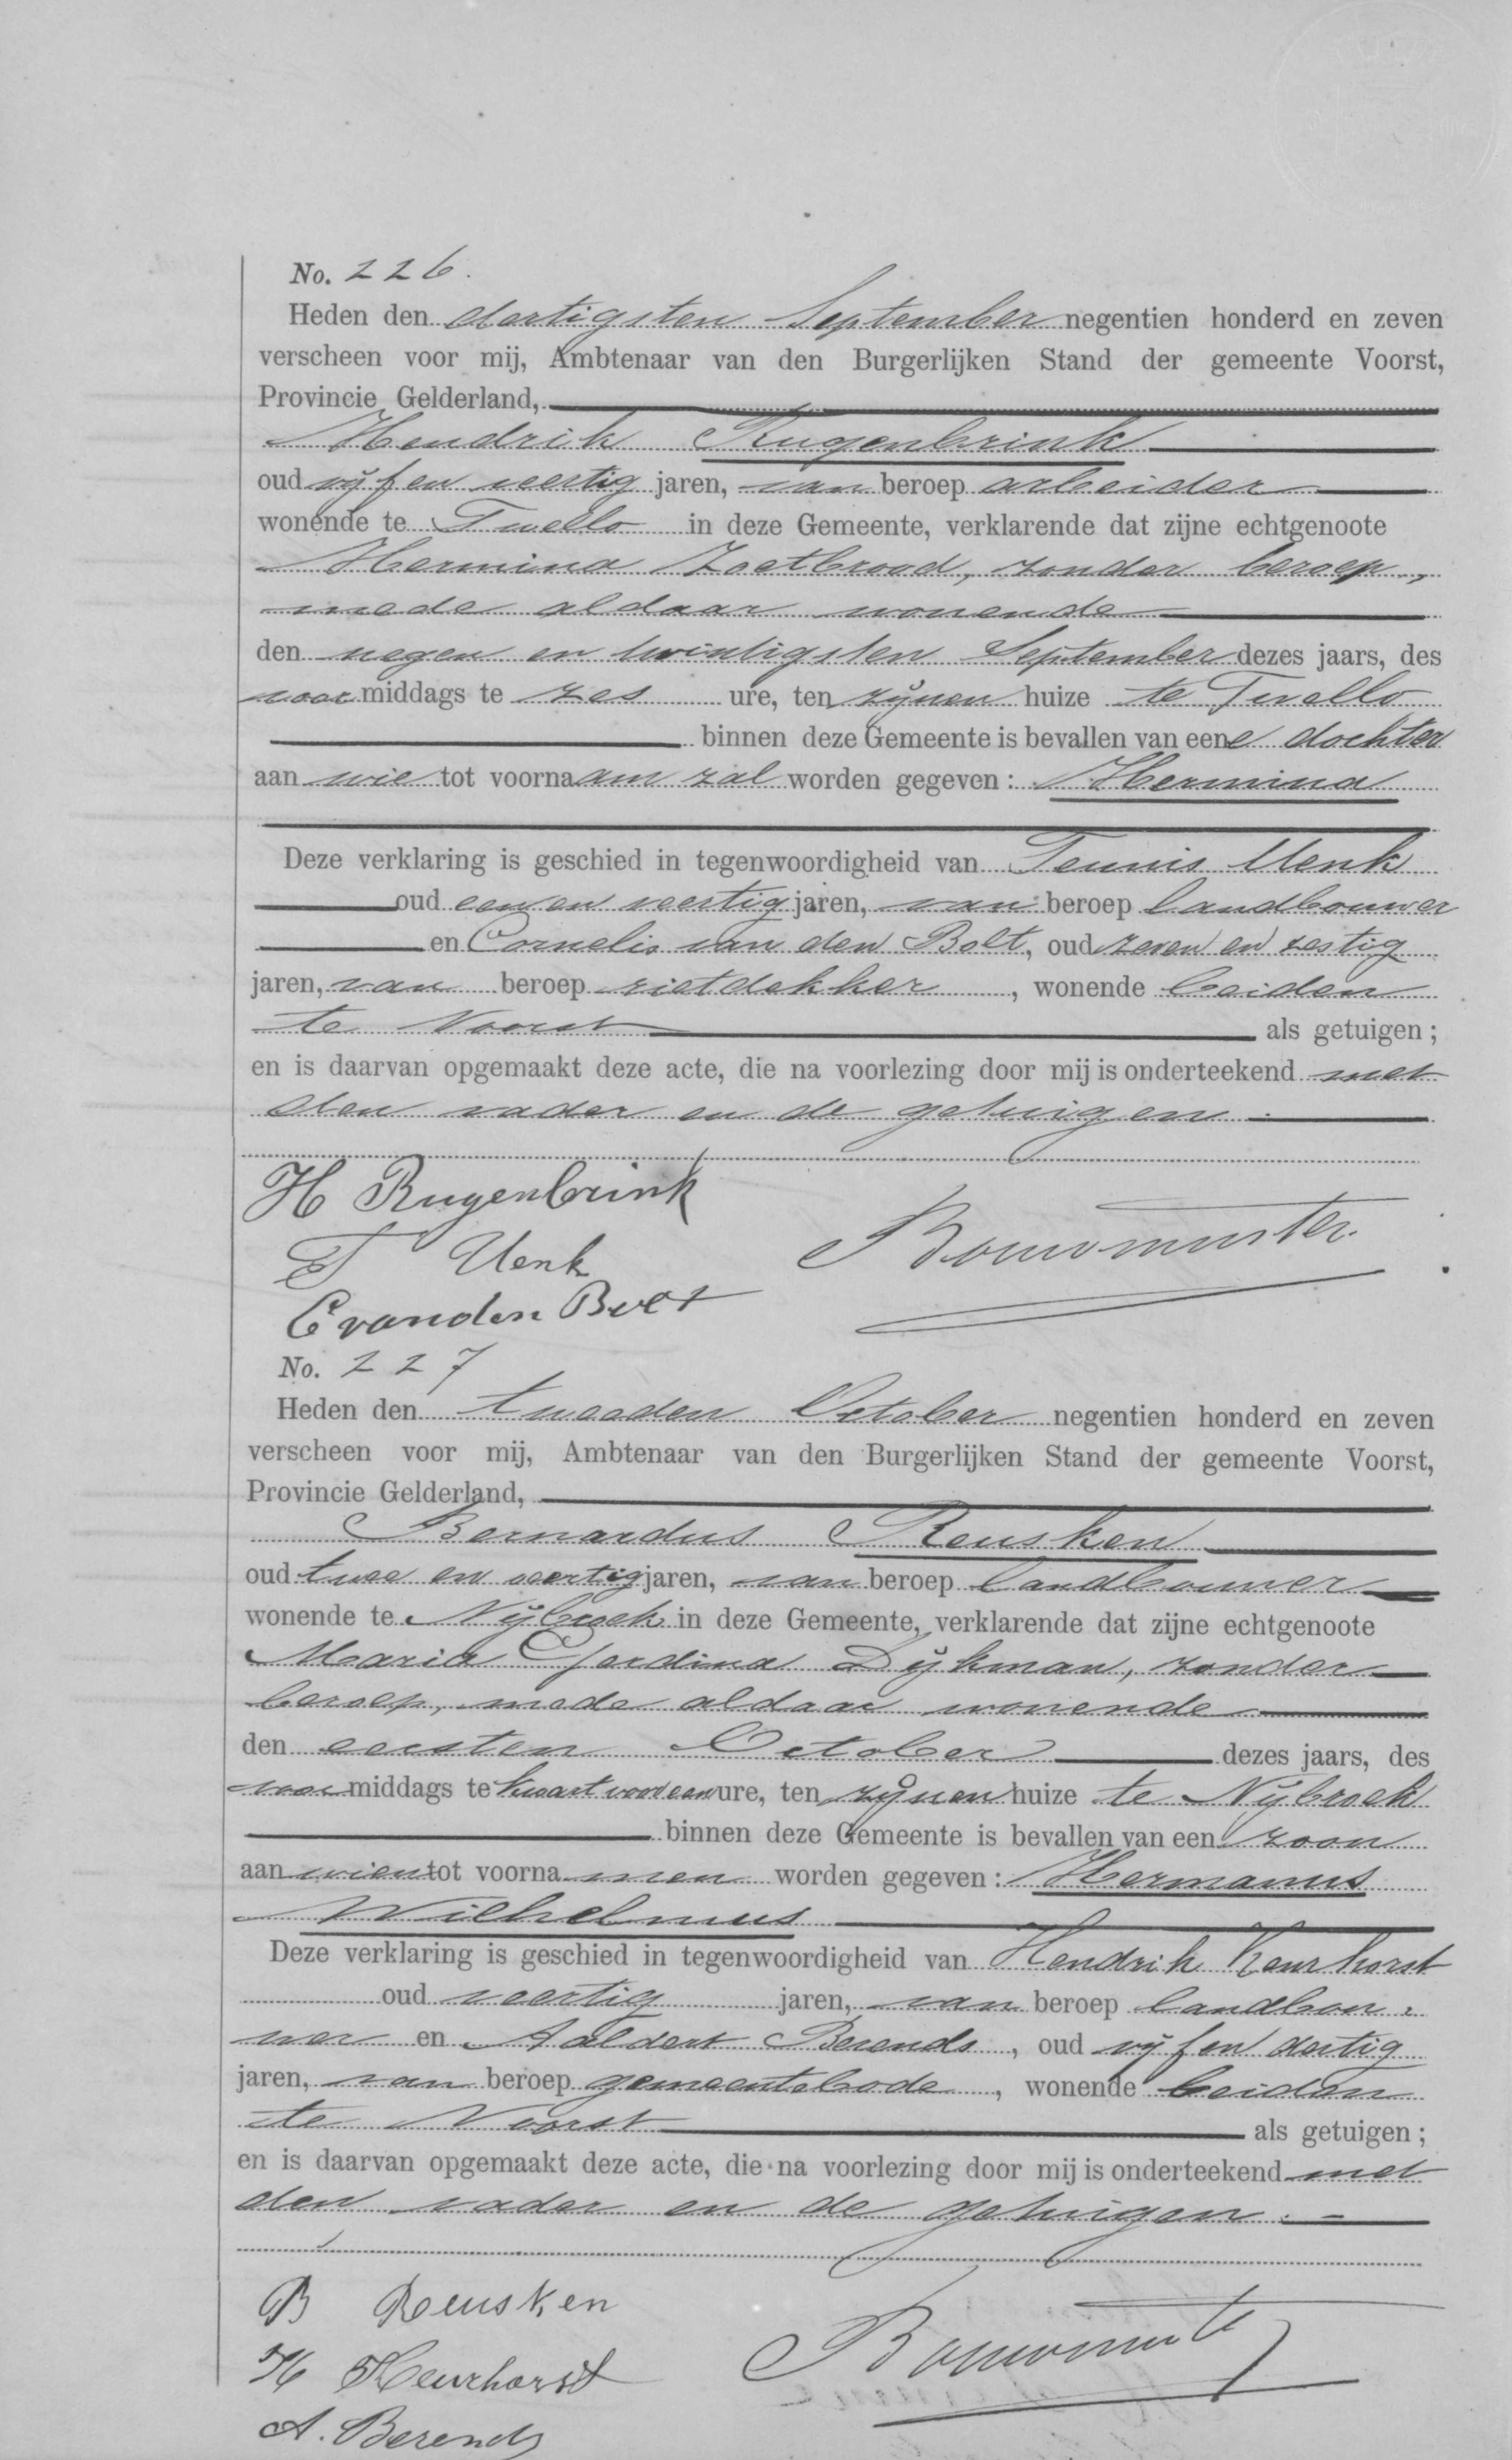 No. 226.
Heden den dertigsten September negentien honderd en zeven
verscheen voor mij, Ambtenaar van den Burgerlijken Stand der gemeente Voorst,
Provincie Gelderland,
Hendrik Rugenbrink
oud vijf en veertig jaren, van beroep arbeider
wonende te Twello in deze Gemeente, verklarende dat zijne echtgenoote
Hermina Zoetbrood, zonder beroep,
mede aldaar wonende
den negen en twintigsten September dezes jaars, des
voormiddags te zes ure, ten zijnen huize te Twello
binnen deze Gemeente is bevallen van eene dochter
aan wie tot voornaam zal worden gegeven: Hermina
Deze verklaring is geschied in tegenwoordigheid van Teunis Uenk
oud een en veertig jaren, van beroep landbouwer
en Cornelis van den Bolt, oud zeven en zestig
jaren, van beroep rietdekker, wonende beiden
te Voorst als getuigen;
en is daarvan opgemaakt deze acte, die na voorlezing door mij is onderteekend met
den vader en de getuigen.
H Rugenbrink
T Uenk
Bouwmeester.
C vanden Bolt
No. 227
Heden den tweeden October negentien honderd en zeven
verscheen voor mij, Ambtenaar van den Burgerlijken Stand der gemeente Voorst,
Provincie Gelderland,
Bernardus Reusken
oud twee en veertig jaren, van beroep landbouwer
wonende te Nijbroek in deze Gemeente, verklarende dat zijne echtgenoote
Maria Gerdina Dijkman, zonder
beroep, mede aldaar wonende
den eersten October dezes jaars, des
voormiddags te kwart voor een ure, ten zijnen huize te Nijbroek
binnen deze Gemeente is bevallen van een zoon
aan wien tot voornamen worden gegeven: Hermanus
Wilhelmus
Deze verklaring is geschied in tegenwoordigheid van Hendrik Keurhorst
oud veertig jaren, van beroep landbou-
wer en Aaldert Berends, oud vijf en dertig
jaren, van beroep gemeentebode, wonende beiden
te Voorst als getuigen;
en is daarvan opgemaakt deze acte, die na voorlezing door mij is onderteekend met
den vader en de getuigen.
B Reusken
H Keurhorst
Bouwmeester
A. Berends